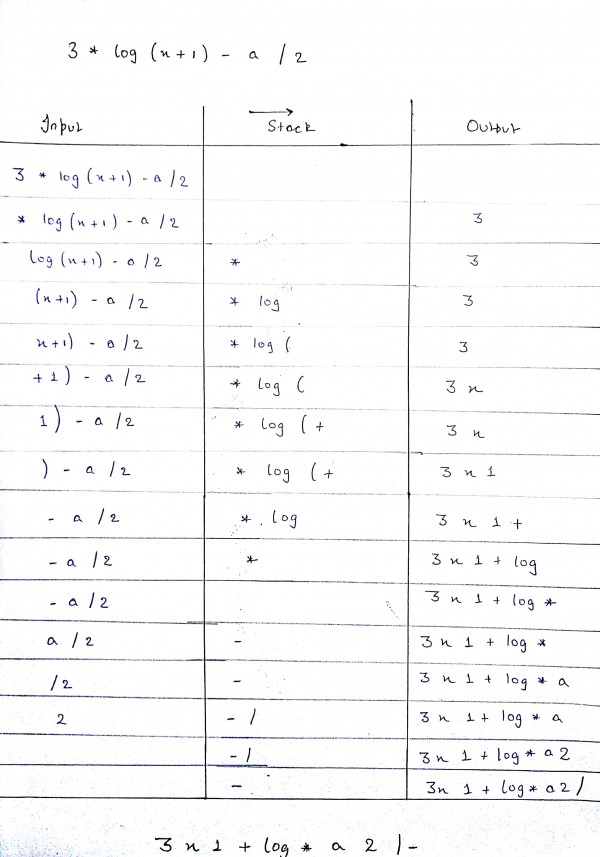 3 * log (x+1) - a / 2
Input Stack Output
3 * log (x+1) - a / 2
* log (x+1) - a / 2 3
log (x+1) - a / 2 * 3
(x+1) - a / 2 * log 3
x+1) - a / 2 * log ( 3
+ 1 ) - a / 2 * log ( 3 x
1 ) - a / 2 * log ( + 3 x
) - a / 2 * log ( + 3 x 1
- a / 2 * . log 3 x 1 +
- a / 2 * 3 x 1 + log
- a / 2 3 x 1 + log *
a / 2 - 3 x 1 + log *
/ 2 - 3 x 1 + log * a
2 - / 3 x 1 + log * a
- / 3 x 1 + log * a 2
- 3 x 1 + log * a 2 /
3 x 1 + log * a 2 / -